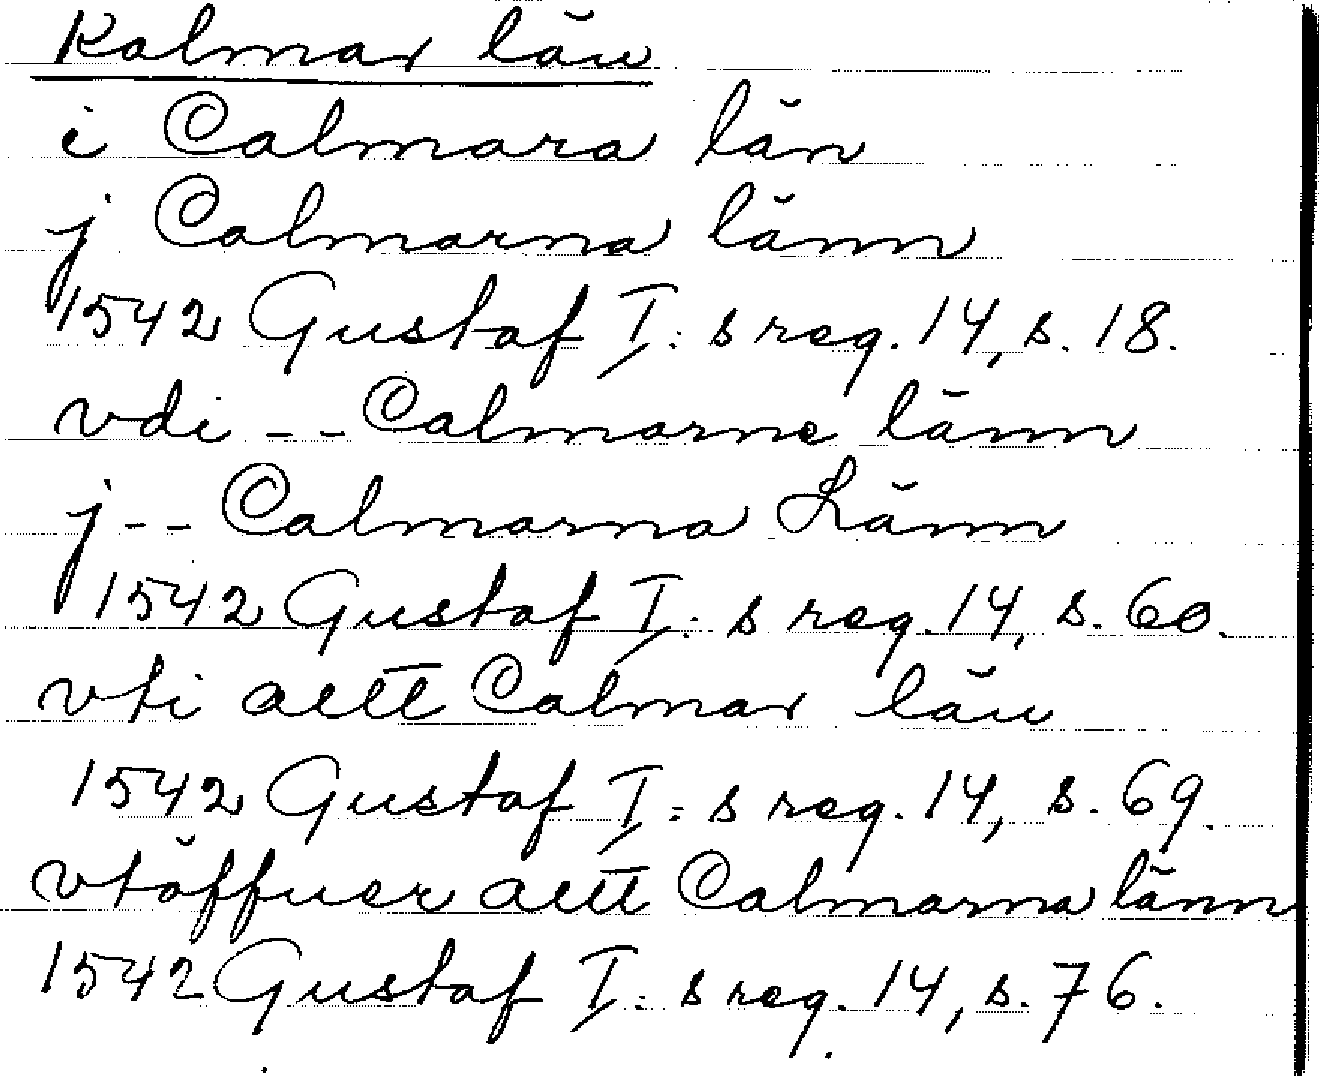 Kalmar län
i Calmara län
j Calmarna länn
1542 Gustaf I:s reg. 14, s. 18.
vdi -- Calmarne länn
j -- Calmarna Länn
1542 Gustaf I:s reg. 14, s. 60.
vti altt Calmar län
1542 Gustaf I:s reg. 14, s. 69.
vtöffuer altt Calmarna länn
1542 Gustaf I:s reg. 14, s. 76.